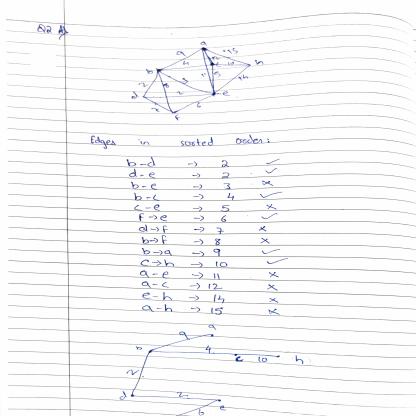 Q2 A)
a
9
15
b
4
10
h
2
3
5
14
8
2
d
e
7
6
f
Edges in sorted order:
b-d → 2 ✓
d-e → 2 ✓
b-e → 3 ×
b-c → 4 ✓
c-e → 5 ×
f→e → 6 ✓
d→f → 7 ×
b→f → 8 ×
b→a → 9 ✓
c→h → 10 ✓
a-e → 11 ×
a-c → 12 ×
e-h → 14 ×
a-h → 15 ×
a
9
b 4 c 10 h
2
d 2 e
6